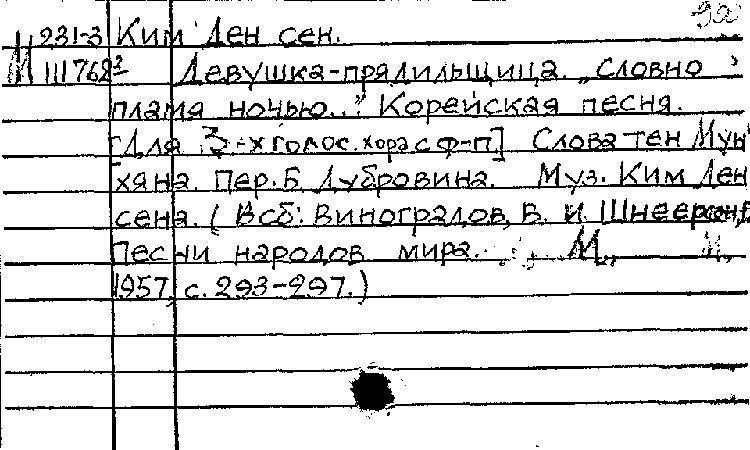 М 231-3 Ким Ден сен.
III 768² Девушка-прядильщица. „Словно
пламя ночью..." Корейская песня.
[Для 3-х голос. хора с ф-п] Слова тен Мун
хяна. Пер. Б. Дубровина. Муз. Ким Ден
сена. (В сб: Виноградов, В. и Шнеерсон, Г.
Песни народов мира. М.,
1957, с. 293-297.)